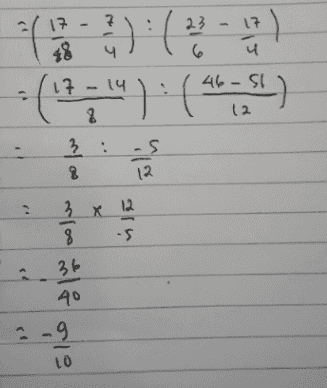 = ( 17/8 - 7/4 ) : ( 23/6 - 17/4 )
= ( (17 - 14)/8 ) : ( (46 - 51)/12 )
= 3/8 : -5/12
= 3/8 x 12/-5
= - 36/40
= - 9/10